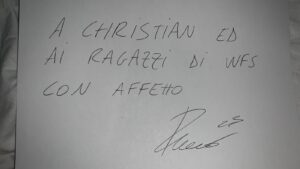 A CHRISTIAN ED
AI RAGAZZI DI WFS
CON AFFETTO